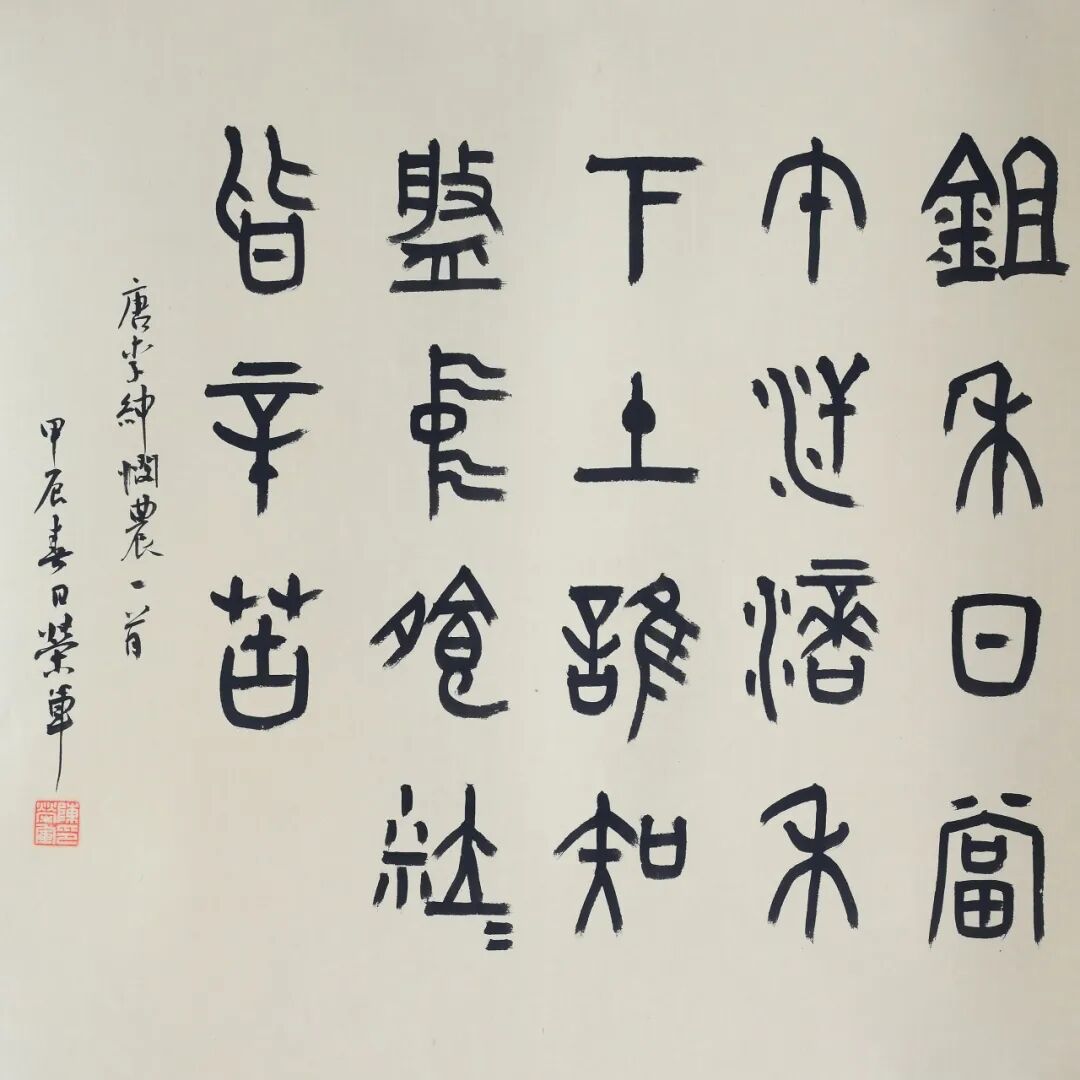 鉏禾日當
午汗滴禾
下土誰知
盤中飧粒〻
皆辛苦
唐李紳憫農一首
甲辰春日榮軍
陳印榮軍